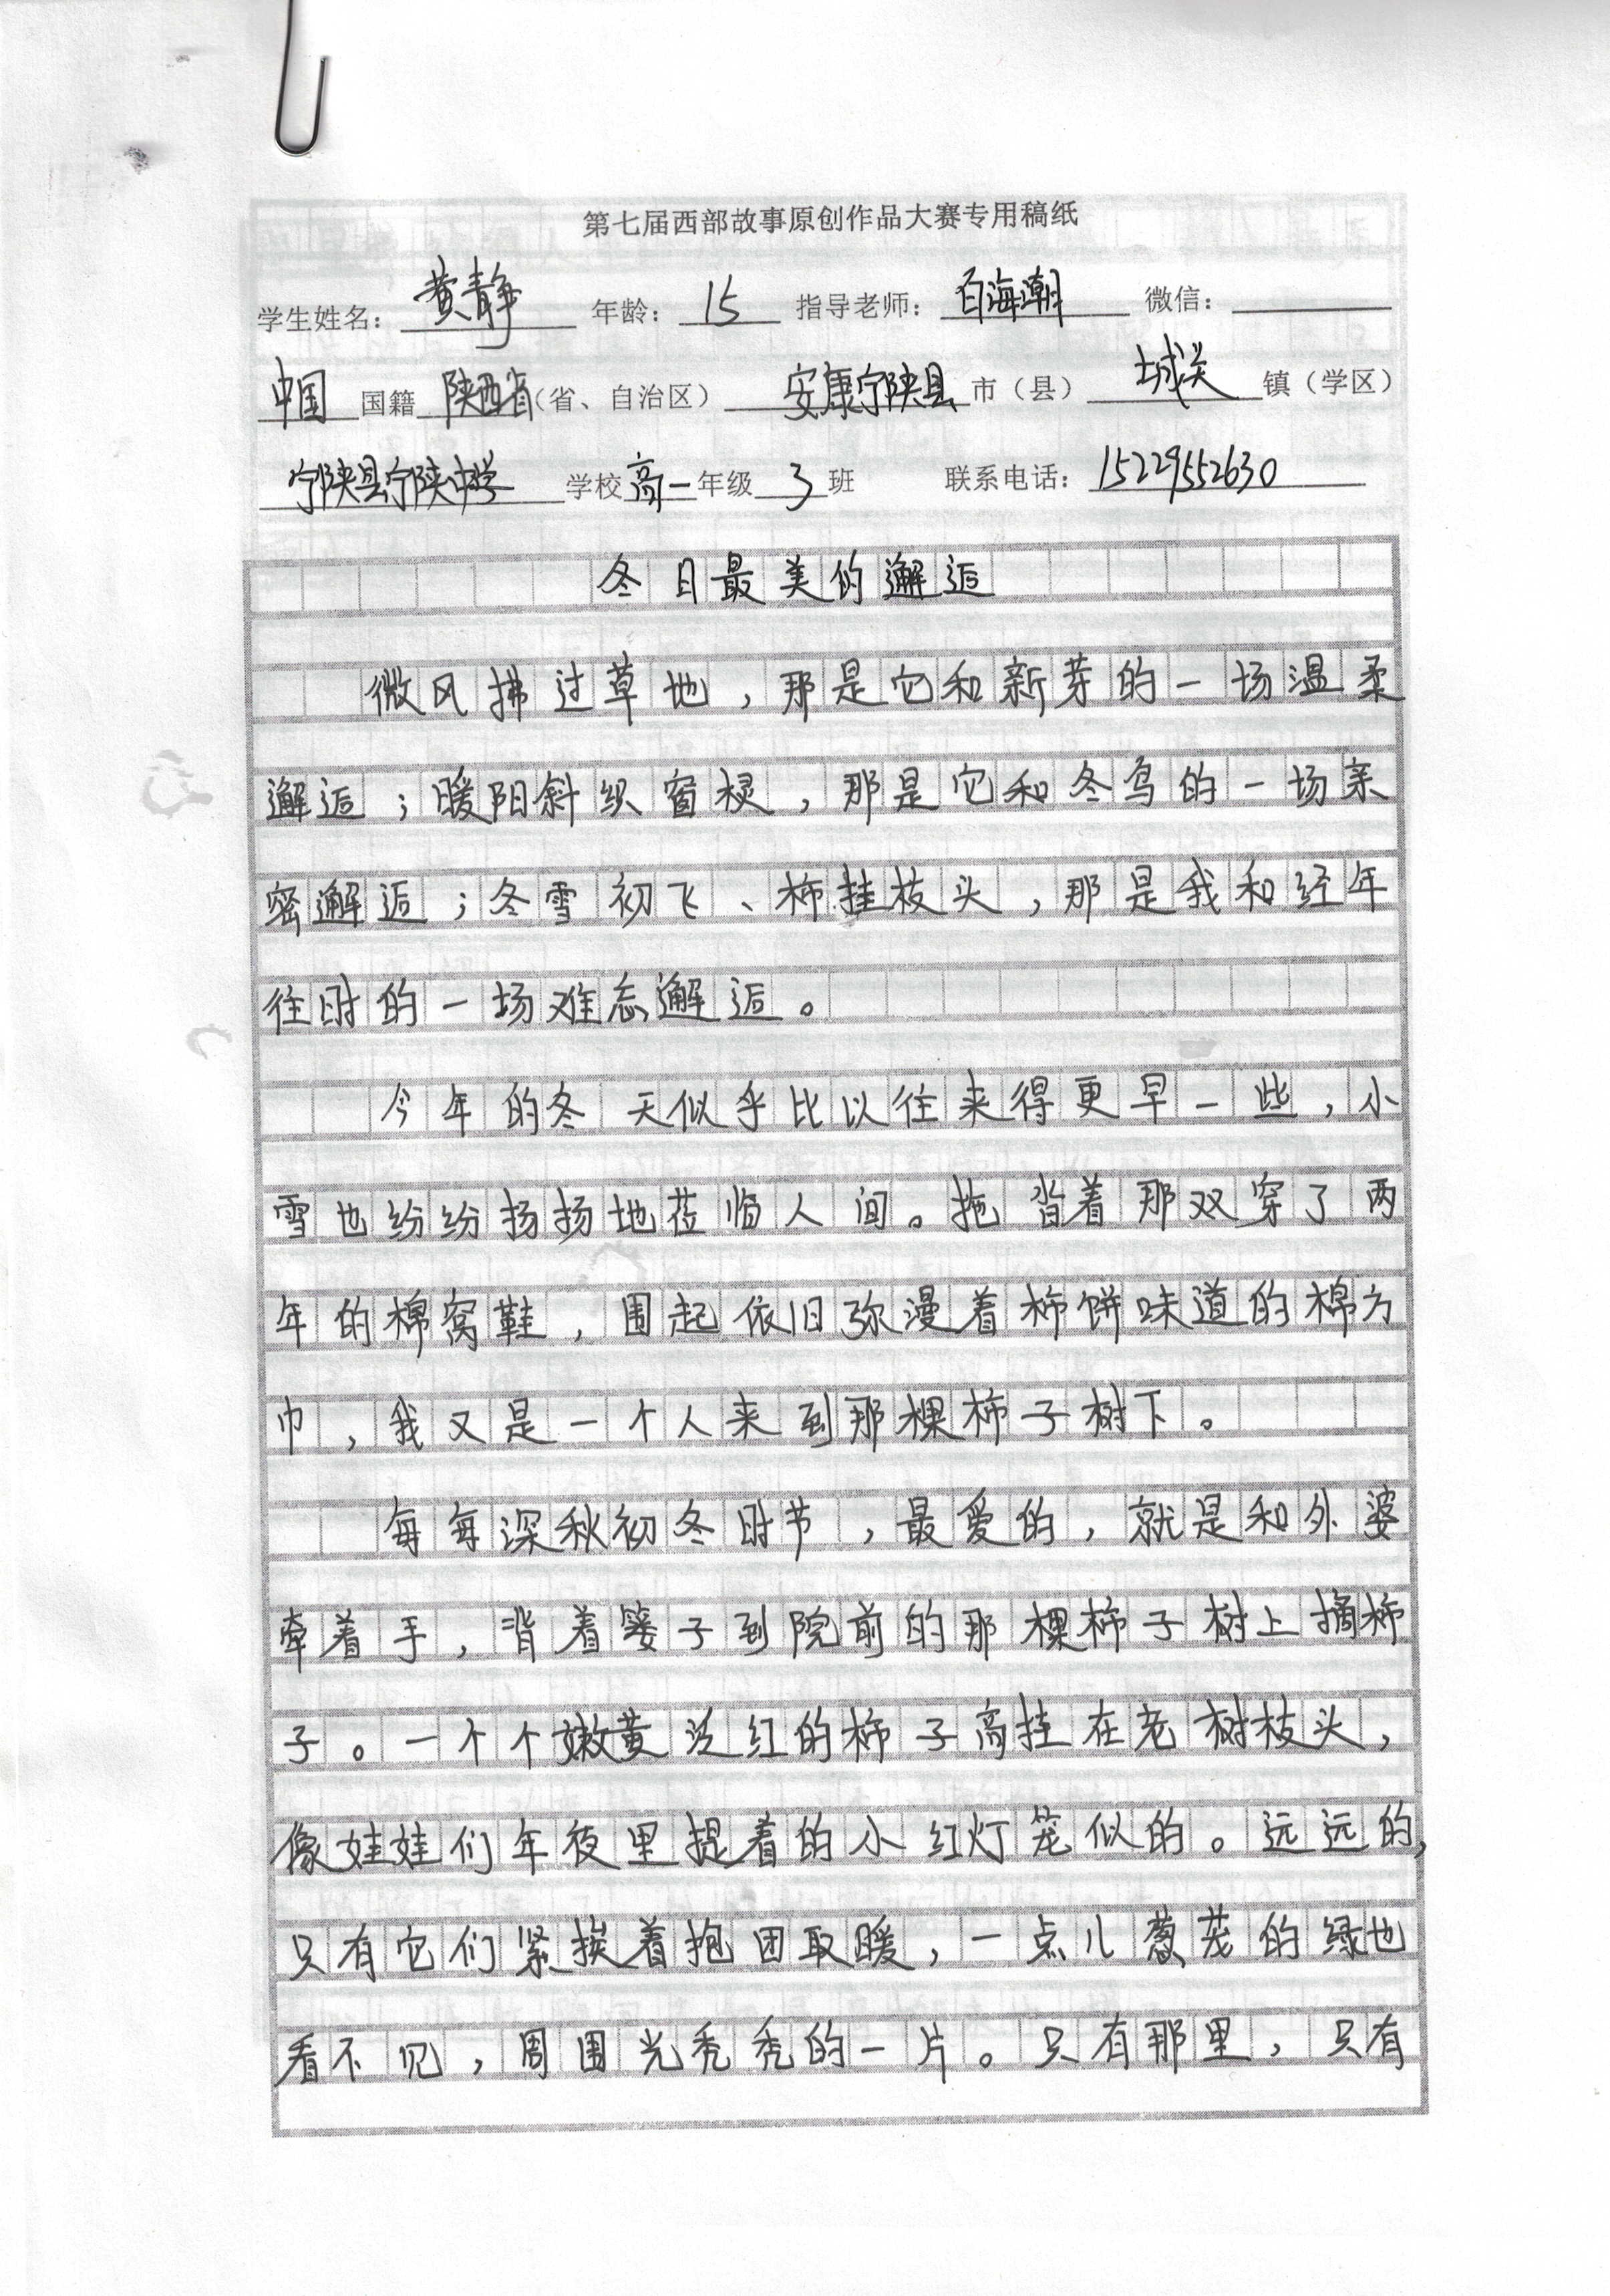 第七届西部故事原创作品大赛专用稿纸
学生姓名：黄静 年龄：15 指导老师：白海潮 微信：
中国国籍陕西省（省、自治区）安康宁陕县市（县）城关镇（学区）
宁陕县宁陕中学学校高一年级3班 联系电话：15229552630
冬日最美的邂逅
微风拂过草地，那是它和新芽的一场温柔
邂逅；暖阳斜织窗棂，那是它和冬鸟的一场亲
密邂逅；冬雪初飞、柿挂枝头，那是我和经年
往时的一场难忘邂逅。
今年的冬天似乎比以往来得更早一些，小
雪也纷纷扬扬地莅临人间。拖沓着那双穿了两
年的棉窝鞋，围起依旧弥漫着柿饼味道的棉方
巾，我又是一个人来到那棵柿子树下。
每每深秋初冬时节，最爱的，就是和外婆
牵着手，背着篓子到院前的那棵柿子树上摘柿
子。一个个嫩黄泛红的柿子高挂在老树枝头，
像娃娃们年夜里提着的小红灯笼似的。远远的，
只有它们紧挨着抱团取暖，一点儿葱茏的绿也
看不见，周围光秃秃的一片。只有那里，只有